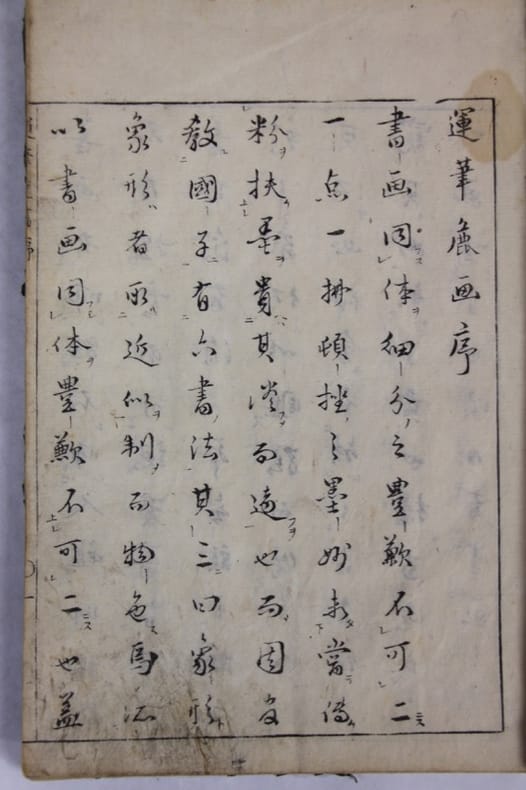 運筆麁画序
書画同体細分之豊歉不可二
一点一拂頓挫之墨妙未當
粉扶墨貴其淡而遠也而周官
教國子有六書法其三曰象形
象形者取近似制而物色馬
以書画同体豊歉不可二也蓋